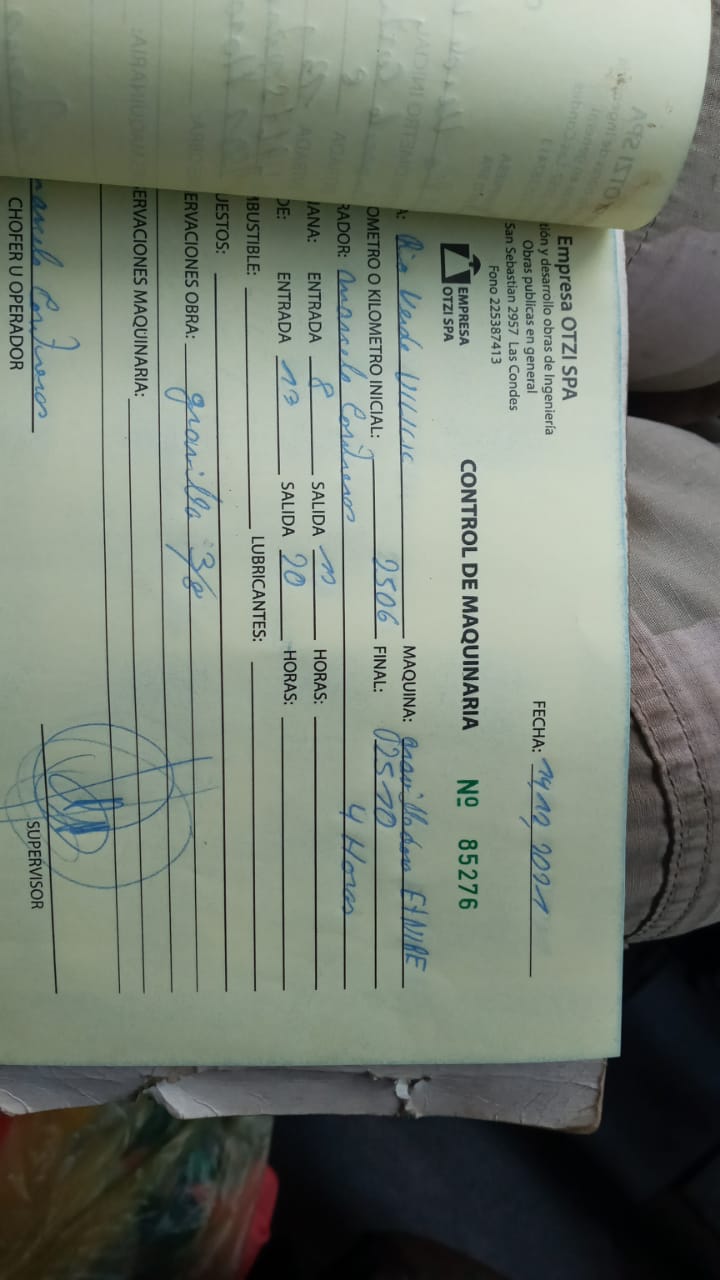 Empresa OTZI SPA
tión y desarrollo obras de Ingeniería
Obras publicas en general
San Sebastian 2957 Las Condes
Fono 225387413
EMPRESA
OTZI SPA
FECHA: 14,12,2021
CONTROL DE MAQUINARIA Nº 85276
A: Rio Verde VILICIC MAQUINA: gravilladora ETNIRE
OMETRO O KILOMETRO INICIAL: 2506 FINAL: 02510
RADOR: Marcelo Contreras 4 Horas
ANA: ENTRADA 8 SALIDA HORAS:
DE: ENTRADA 13 SALIDA 20 HORAS:
MBUSTIBLE: LUBRICANTES:
UESTOS:
ERVACIONES OBRA: gravilla 3/8
ERVACIONES MAQUINARIA:
arcelo Contreras
CHOFER U OPERADOR
SUPERVISOR